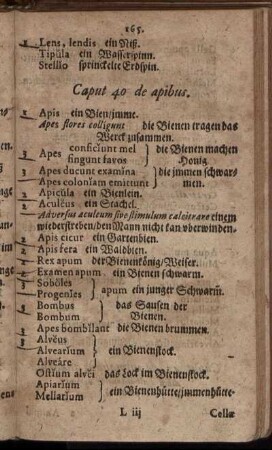 165.
3 Lens, lendis ein Niß.
Tipŭla ein Wasserspinn.
Stellio sprinckelte Erdspin.
Caput 40 de apibus.
1 Apis ein Bien/imme.
Apes flores colligunt die Bienen tragen das
Werck zusammen.
3 Apes conficĭunt mel } die Bienen machen
fingunt favos } Honig.
Apes ducunt examĭna } die immen schwar-
Apes colonĭam emittunt } men.
Apicŭla ein Bienlein.
2 Aculĕus ein Stachel.
Adversus aculeum sive stimulum calcitrare einem
wiederstreben/den Mann nicht kan uberwinden.
Apis cicur ein Gartenbien.
Apis fera ein Waldbien.
Rex apum der Bienenkönig/Weiser.
Examen apum ein Bienen schwarm.
3 Sobŏles } apum ein junger Schwarm.
Progenĭes
4 Bombus } das Sausen der
Bombum } Bienen.
1 Apes bombĭlant die Bienen brummen.
3 Alvĕus
Alvearĭum } ein Bienenstock.
Alveāre
Ostĭum alvĕi das Lock im Bienenstock.
Apiarĭum } ein Bienenhütte/immenhütte-
Mellarĭum
L iij Cellæ